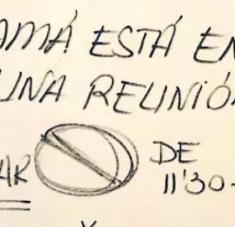 AMÁ ESTÁ EN
UNA REUNIÓ
AR DE
11'30-